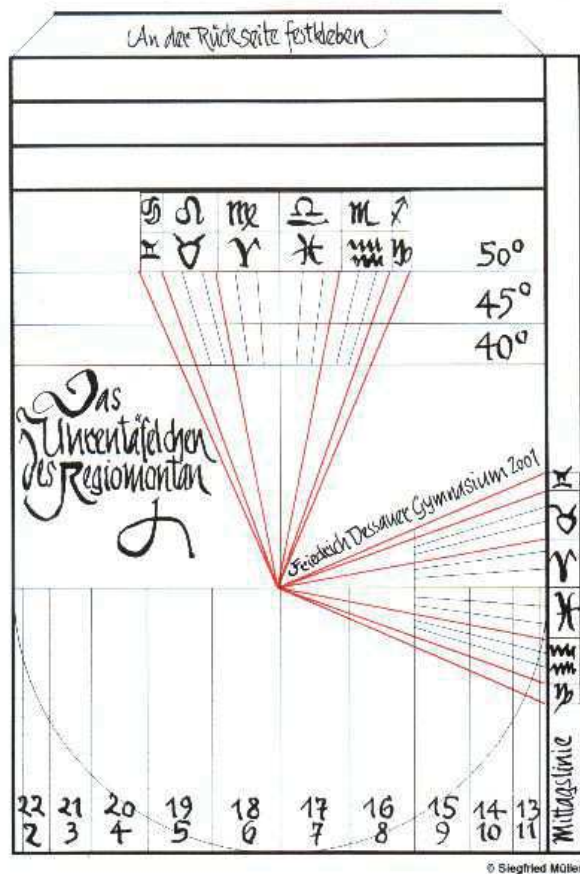 An der Rückseite festkleben
♋ ♌ ♍ ♎ ♏ ♐
♊ ♉ ♈ ♓ ♒ ♑
50°
45°
40°
Das
Uhrentäfelchen
des Regiomontan
Friedrich Dessauer Gymnasium 2001
♊
♉
♈
♓
♒
♑
Mittagslinie
22 21 20 19 18 17 16 15 14 13
2 3 4 5 6 7 8 9 10 11
© Siegfried Müller